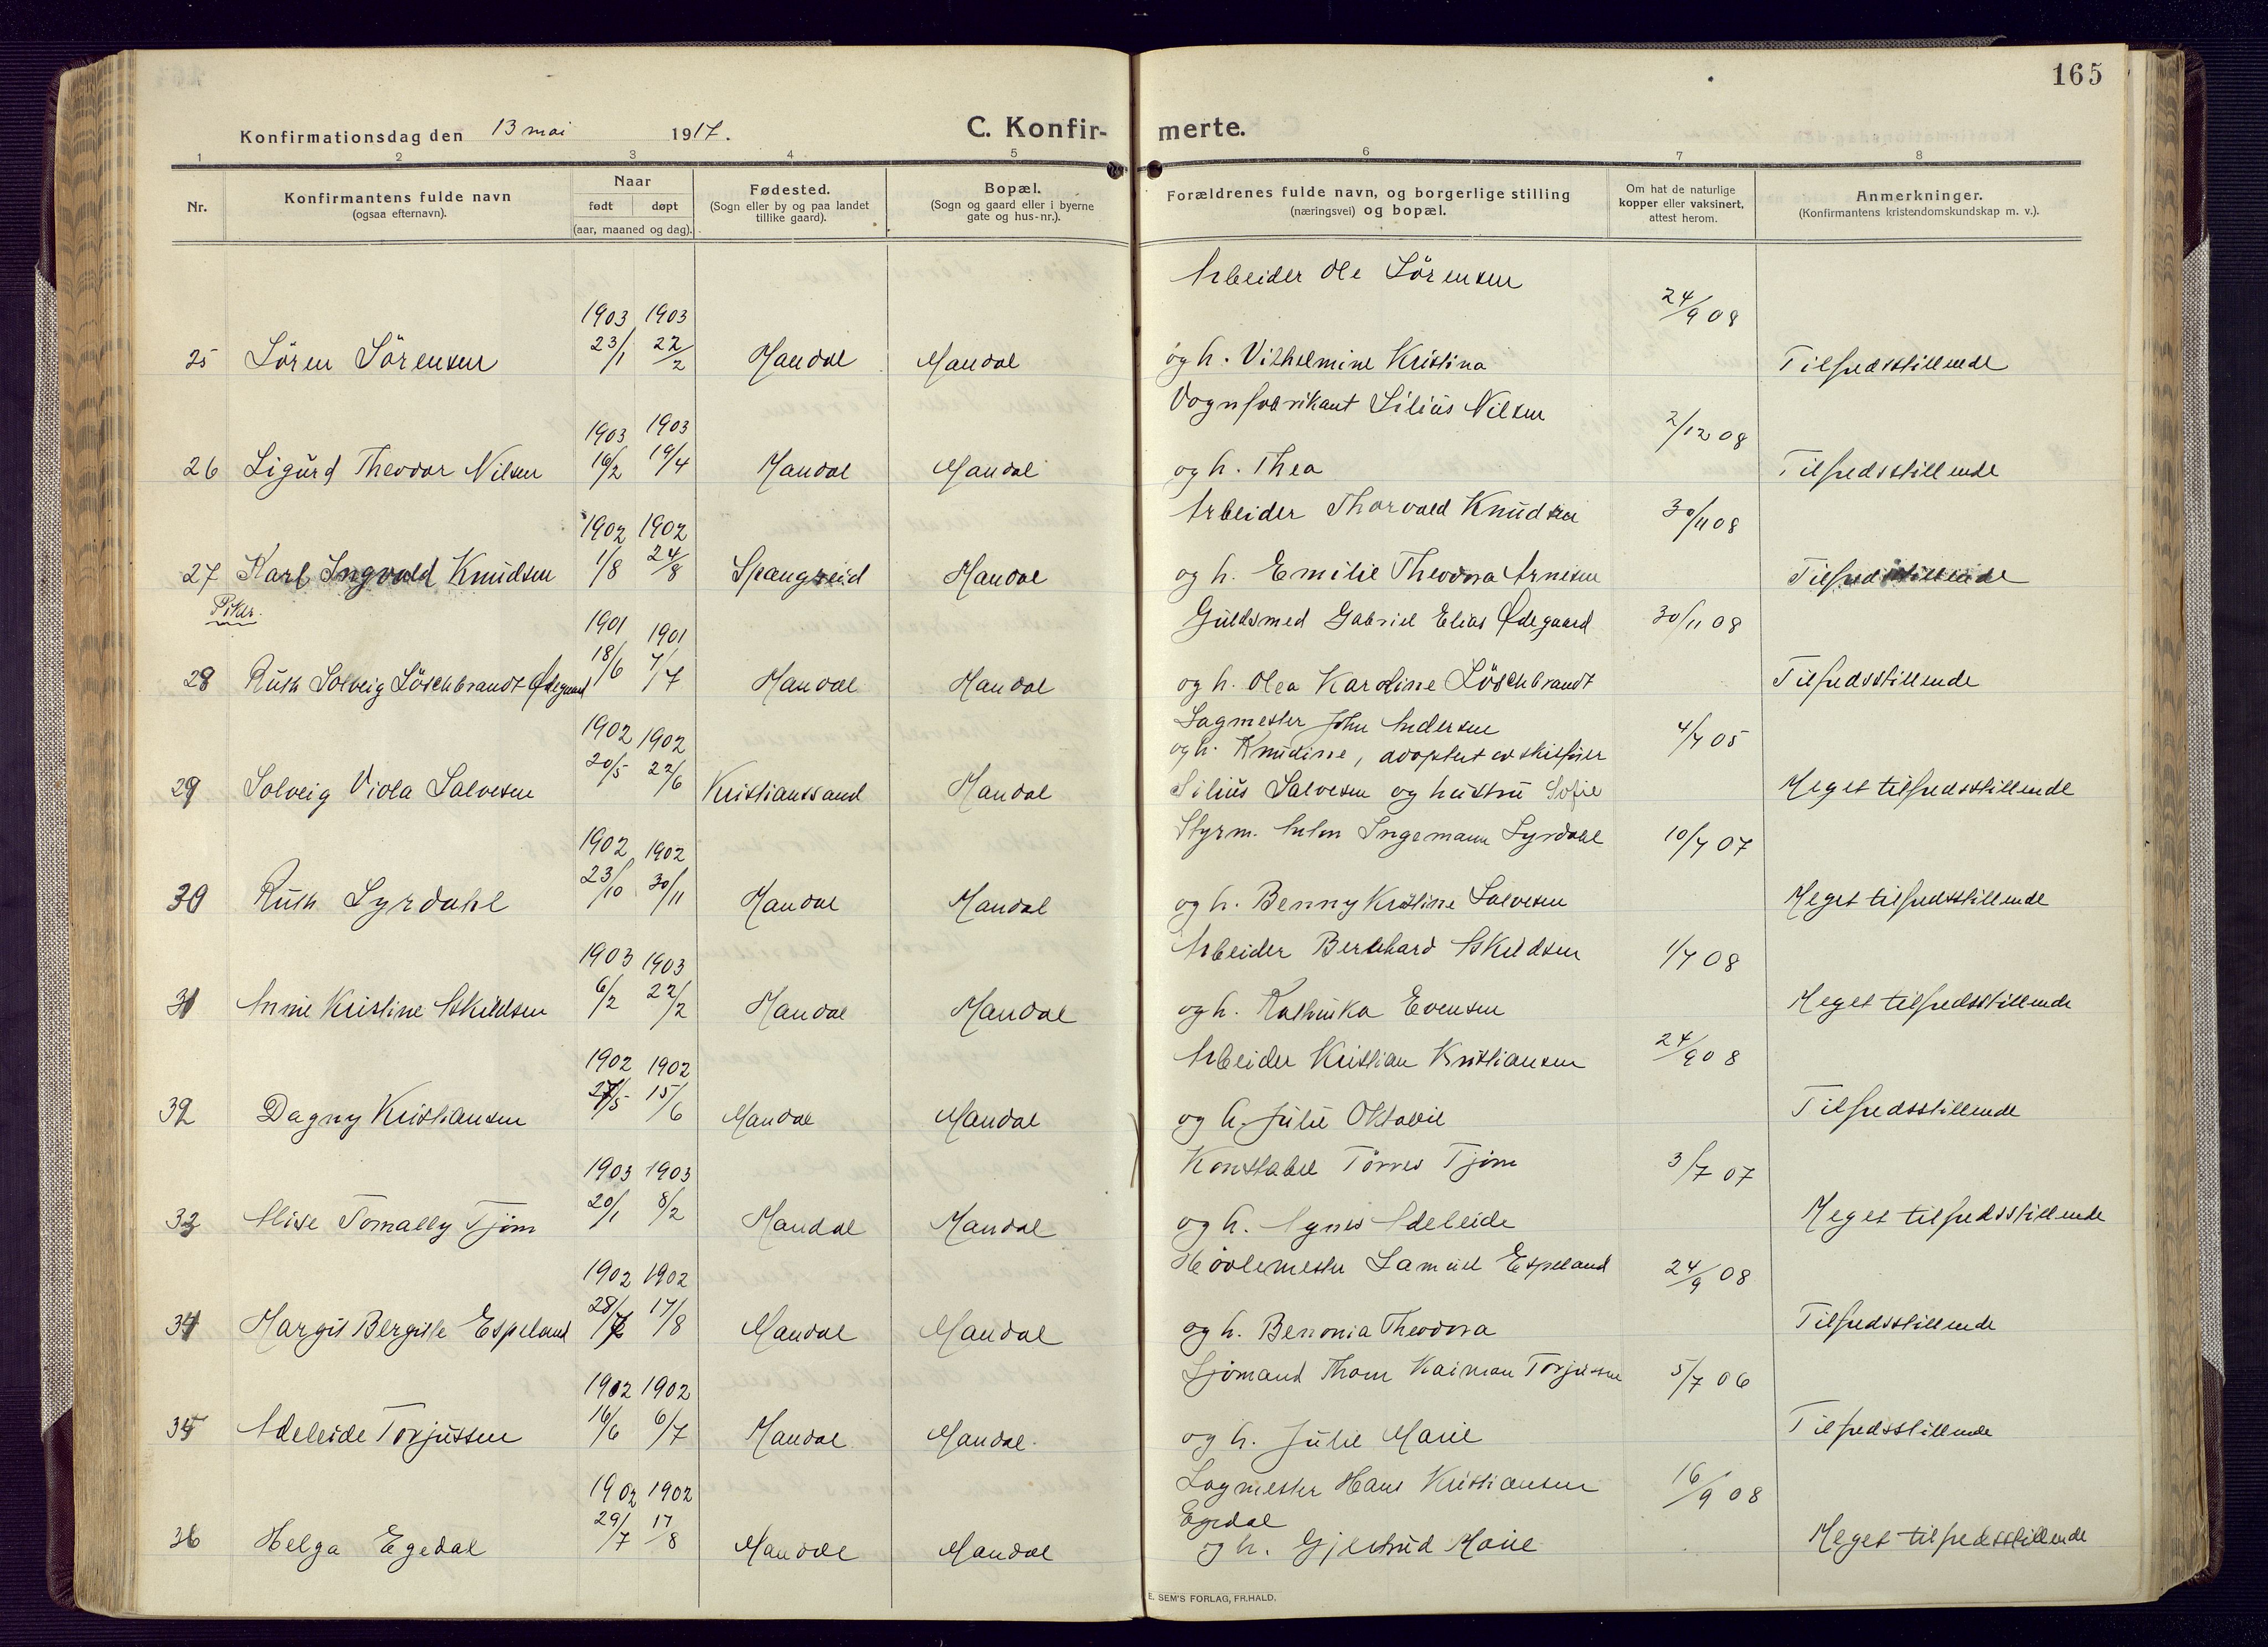 165
Konfirmationsdag den 13 mai 1917.
C. Konfir-
merte.
1 2 3 4 5 6 7 8
Nr.
Konfirmantens fulde navn
(ogsaa efternavn).
Naar
født døpt
(aar, maaned og dag).
Fødested.
(Sogn eller by og paa landet
tillike gaard).
Bopæl.
(Sogn og gaard eller i byerne
gate og hus-nr.).
Forældrenes fulde navn, og borgerlige stilling
(næringsvei) og bopæl.
Om hat de naturlige
kopper eller vaksinert,
attest herom.
Anmerkninger.
(Konfirmantens kristendomskundskap m. v.).
Arbeider Ole Sörensen
1903 1903 24/9 08
25 Sören Sörensen 23/1 22/2 Mandal Mandal og h. Vilhelmine Kristina Tilfredsstillende
Vognfabrikant Silius Nilsen
1903 1903 2/12 08
26 Sigurd Theodor Nilsen 16/2 19/4 Mandal Mandal og h. Thea Tilfredsstillende
1902 1902 Arbeider Thorvald Knudsen 30/11 08
27 Karl Ingvald Knudsen 1/8 24/8 Spangreid Mandal og h. Emilie Theodora Arnesen Tilfredsstillende
Piker.
1901 1901 Guldsmed Gabriel Elias Ødegaard 30/11 08
28 Ruth Solveig Löschbrandt Ødegaard 18/6 7/7 Mandal Mandal og h. Olea Karoline Löschbrandt Tilfredsstillende
1902 1902 Sagmester John Andersen 4/7 05
og h. Knudine, adoptert av skibsfører
29 Solveig Viola Salvesen 20/5 22/6 Kristianssand Mandal Silius Salvesen og hustru Sofie Meget tilfredsstillende
1902 1902 Styrm. Anton Ingemann Syrdahl 10/7 07
30 Ruth Syrdahl 23/10 30/11 Mandal Mandal og h. Benny Kristine Salvesen Meget tilfredsstillende
1903 1903 Arbeider Bernhard Askildsen 1/7 08
31 Annie Kristine Askildsen 6/2 22/2 Mandal Mandal og h. Kathinka Evensen Meget tilfredsstillende
1902 1902 Arbeider Kristian Kristiansen 24/9 08
32 Dagny Kristiansen 27/5 15/6 Mandal Mandal og h. Julie Oktavie Tilfredsstillende
1903 1903 Konstabel Törres Tjöm 3/7 07
33 Alise Tomally Tjöm 20/1 8/2 Mandal Mandal og h. Agnes Adeleide Meget tilfredsstillende
1902 1902 Hövlemester Samuel Espeland 24/9 08
34 Margit Bergitte Espeland 28/7 17/8 Mandal Mandal og h. Benonia Theodora Tilfredsstillende
1902 1902 Sjömand Thom Kaiman Torjussen 5/7 06
35 Adeleide Torjussen 16/6 6/7 Mandal Mandal. og h. Julie Marie Tilfredsstillende
1902 1902 Sagmester Hans Kristiansen 16/9 08
Egedal
36 Helga Egedal 29/7 17/8 Mandal Mandal og h. Gjertrud Marie Meget tilfredsstillende
E. SEM'S FORLAG, FR.HALD.